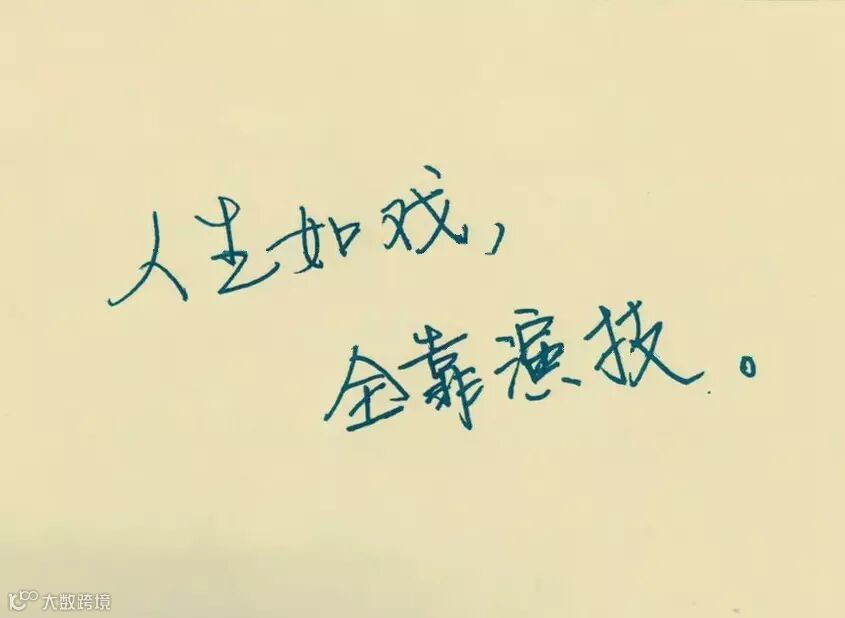 人生如戏，
全靠演技。
大数跨境